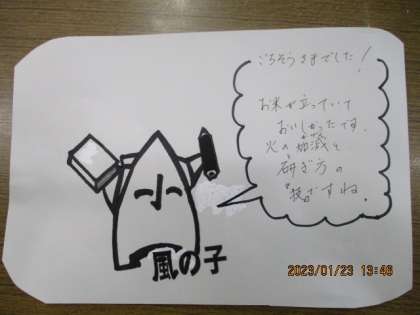 ごちそうさまでした!
お米が立っていて
おいしかったです。
火の加減と
研ぎ方の
"技"ですね。
小
風の子
2023/01/23 13:46